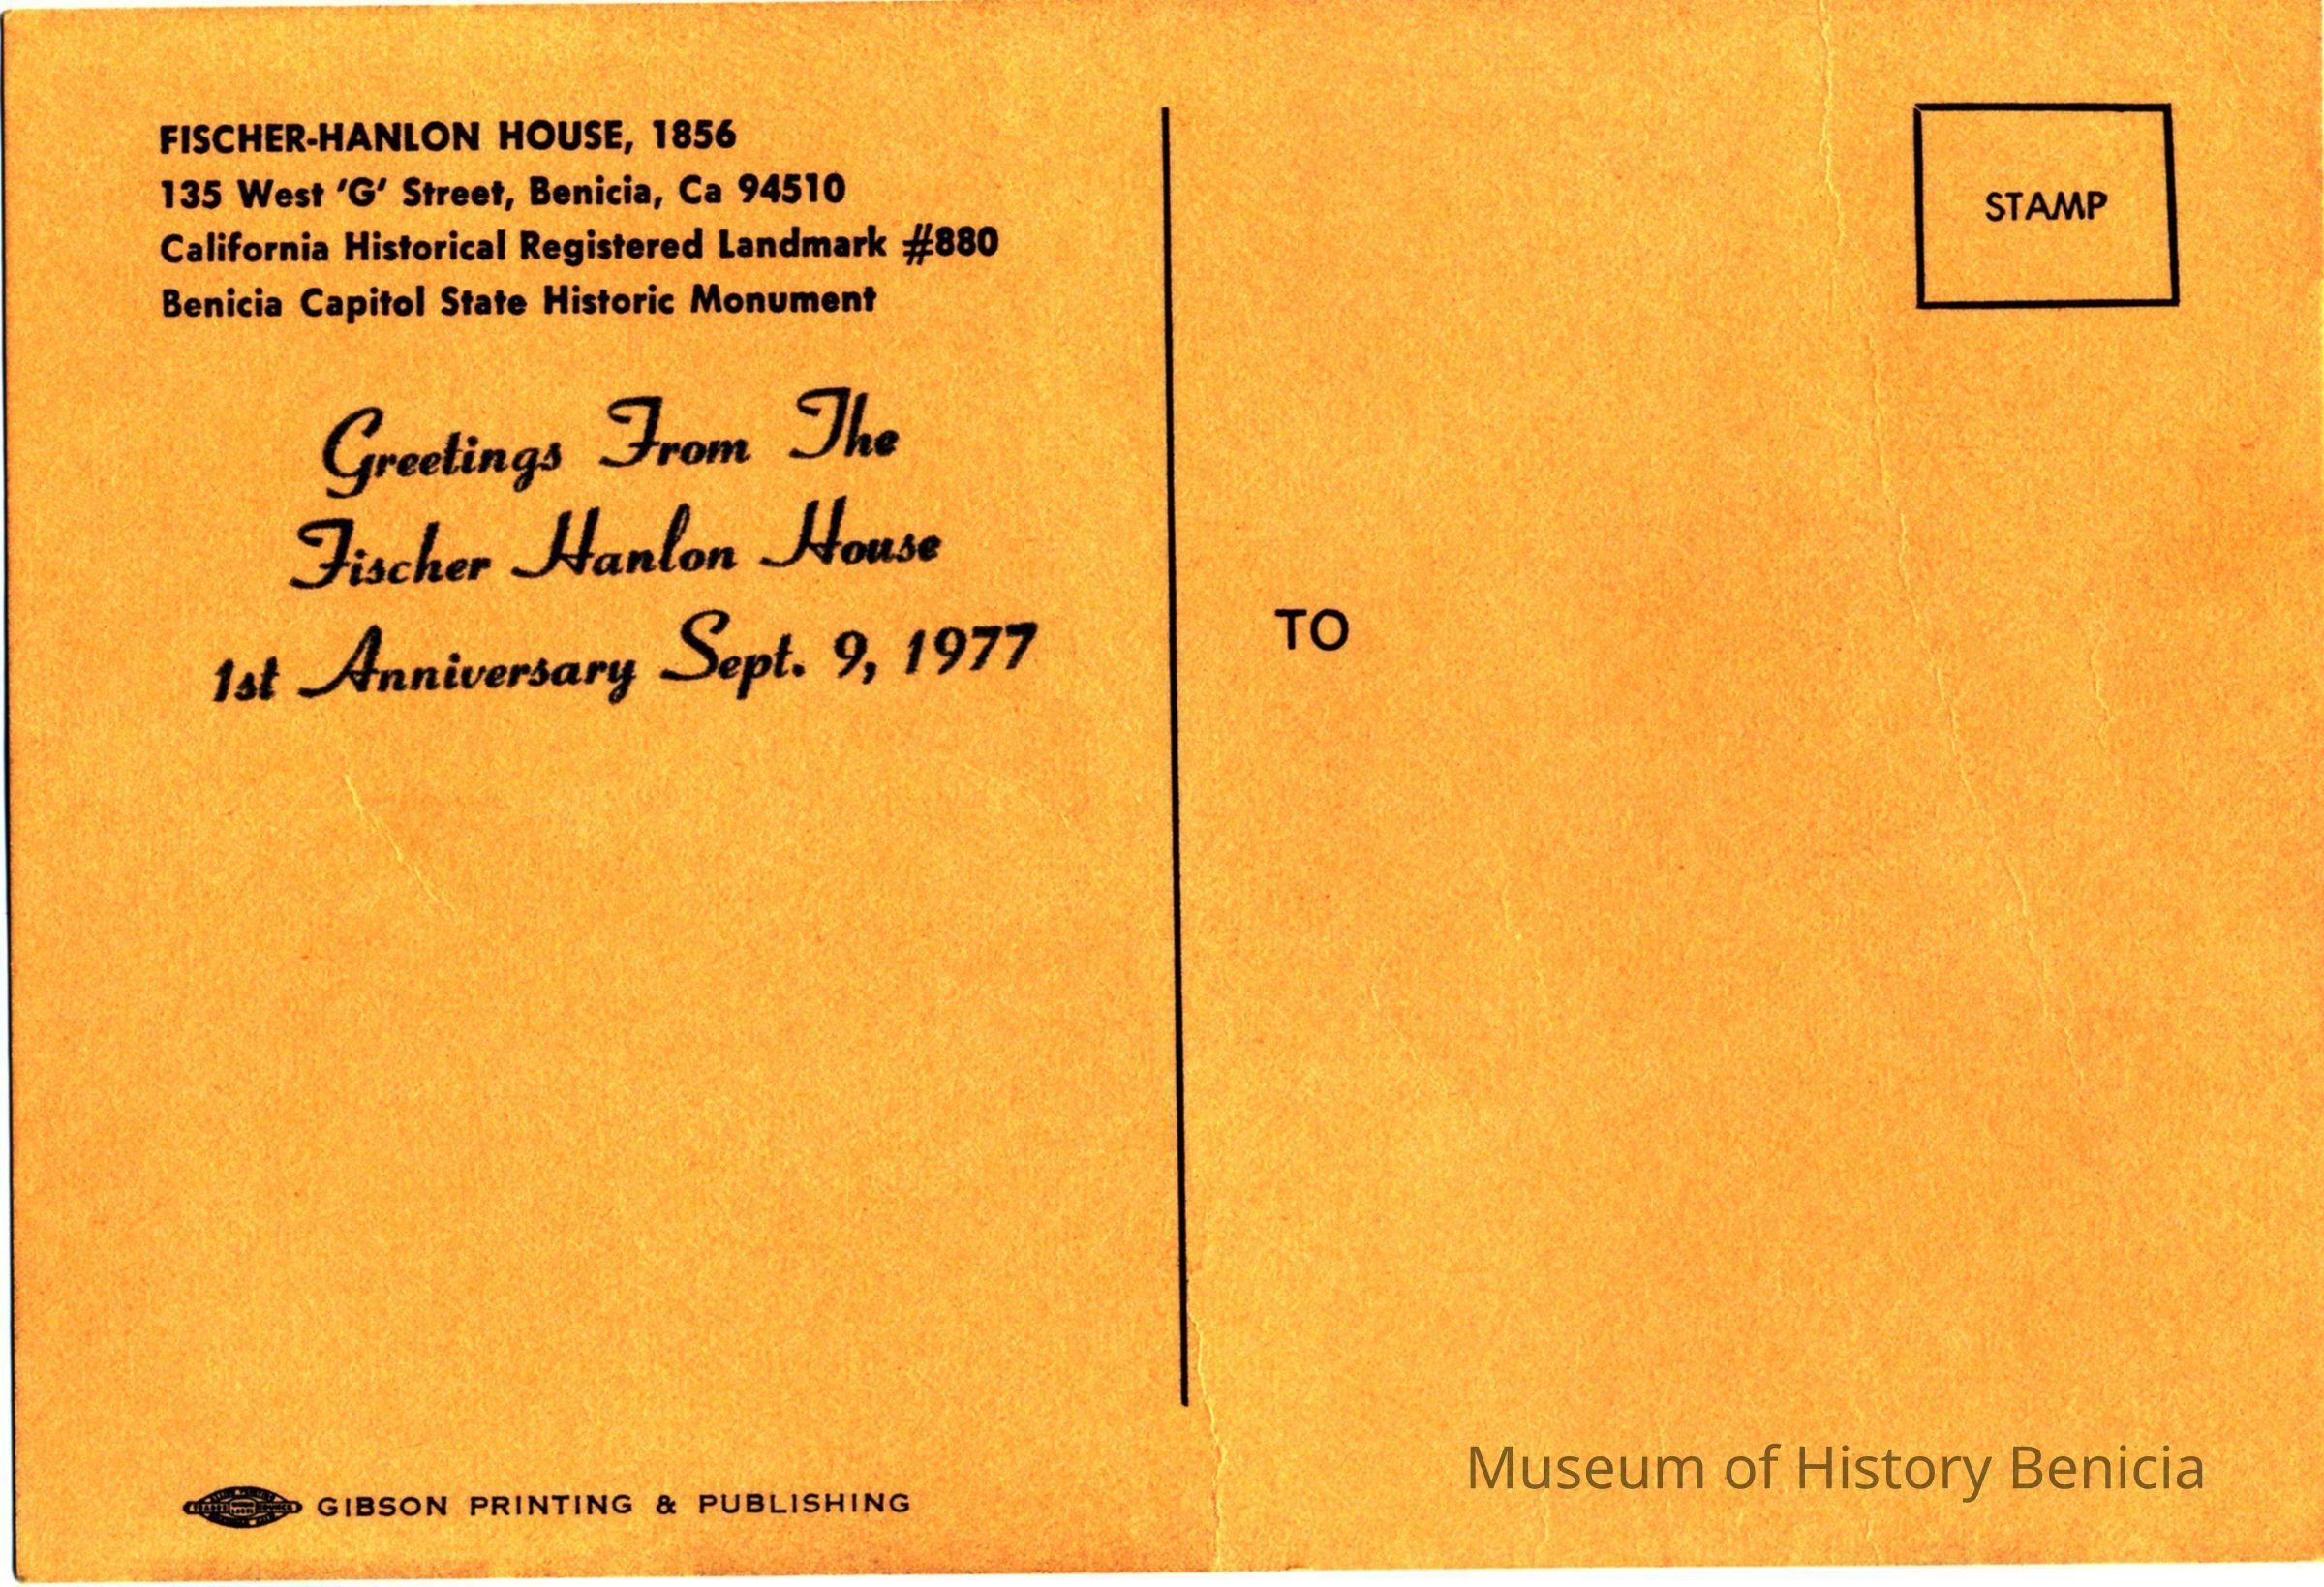 FISCHER-HANLON HOUSE, 1856
135 West 'G' Street, Benicia, Ca 94510
California Historical Registered Landmark #880
Benicia Capitol State Historic Monument
Greetings From The
Fischer Hanlon House
1st Anniversary Sept. 9, 1977
GIBSON PRINTING & PUBLISHING
STAMP
TO
Museum of History Benicia